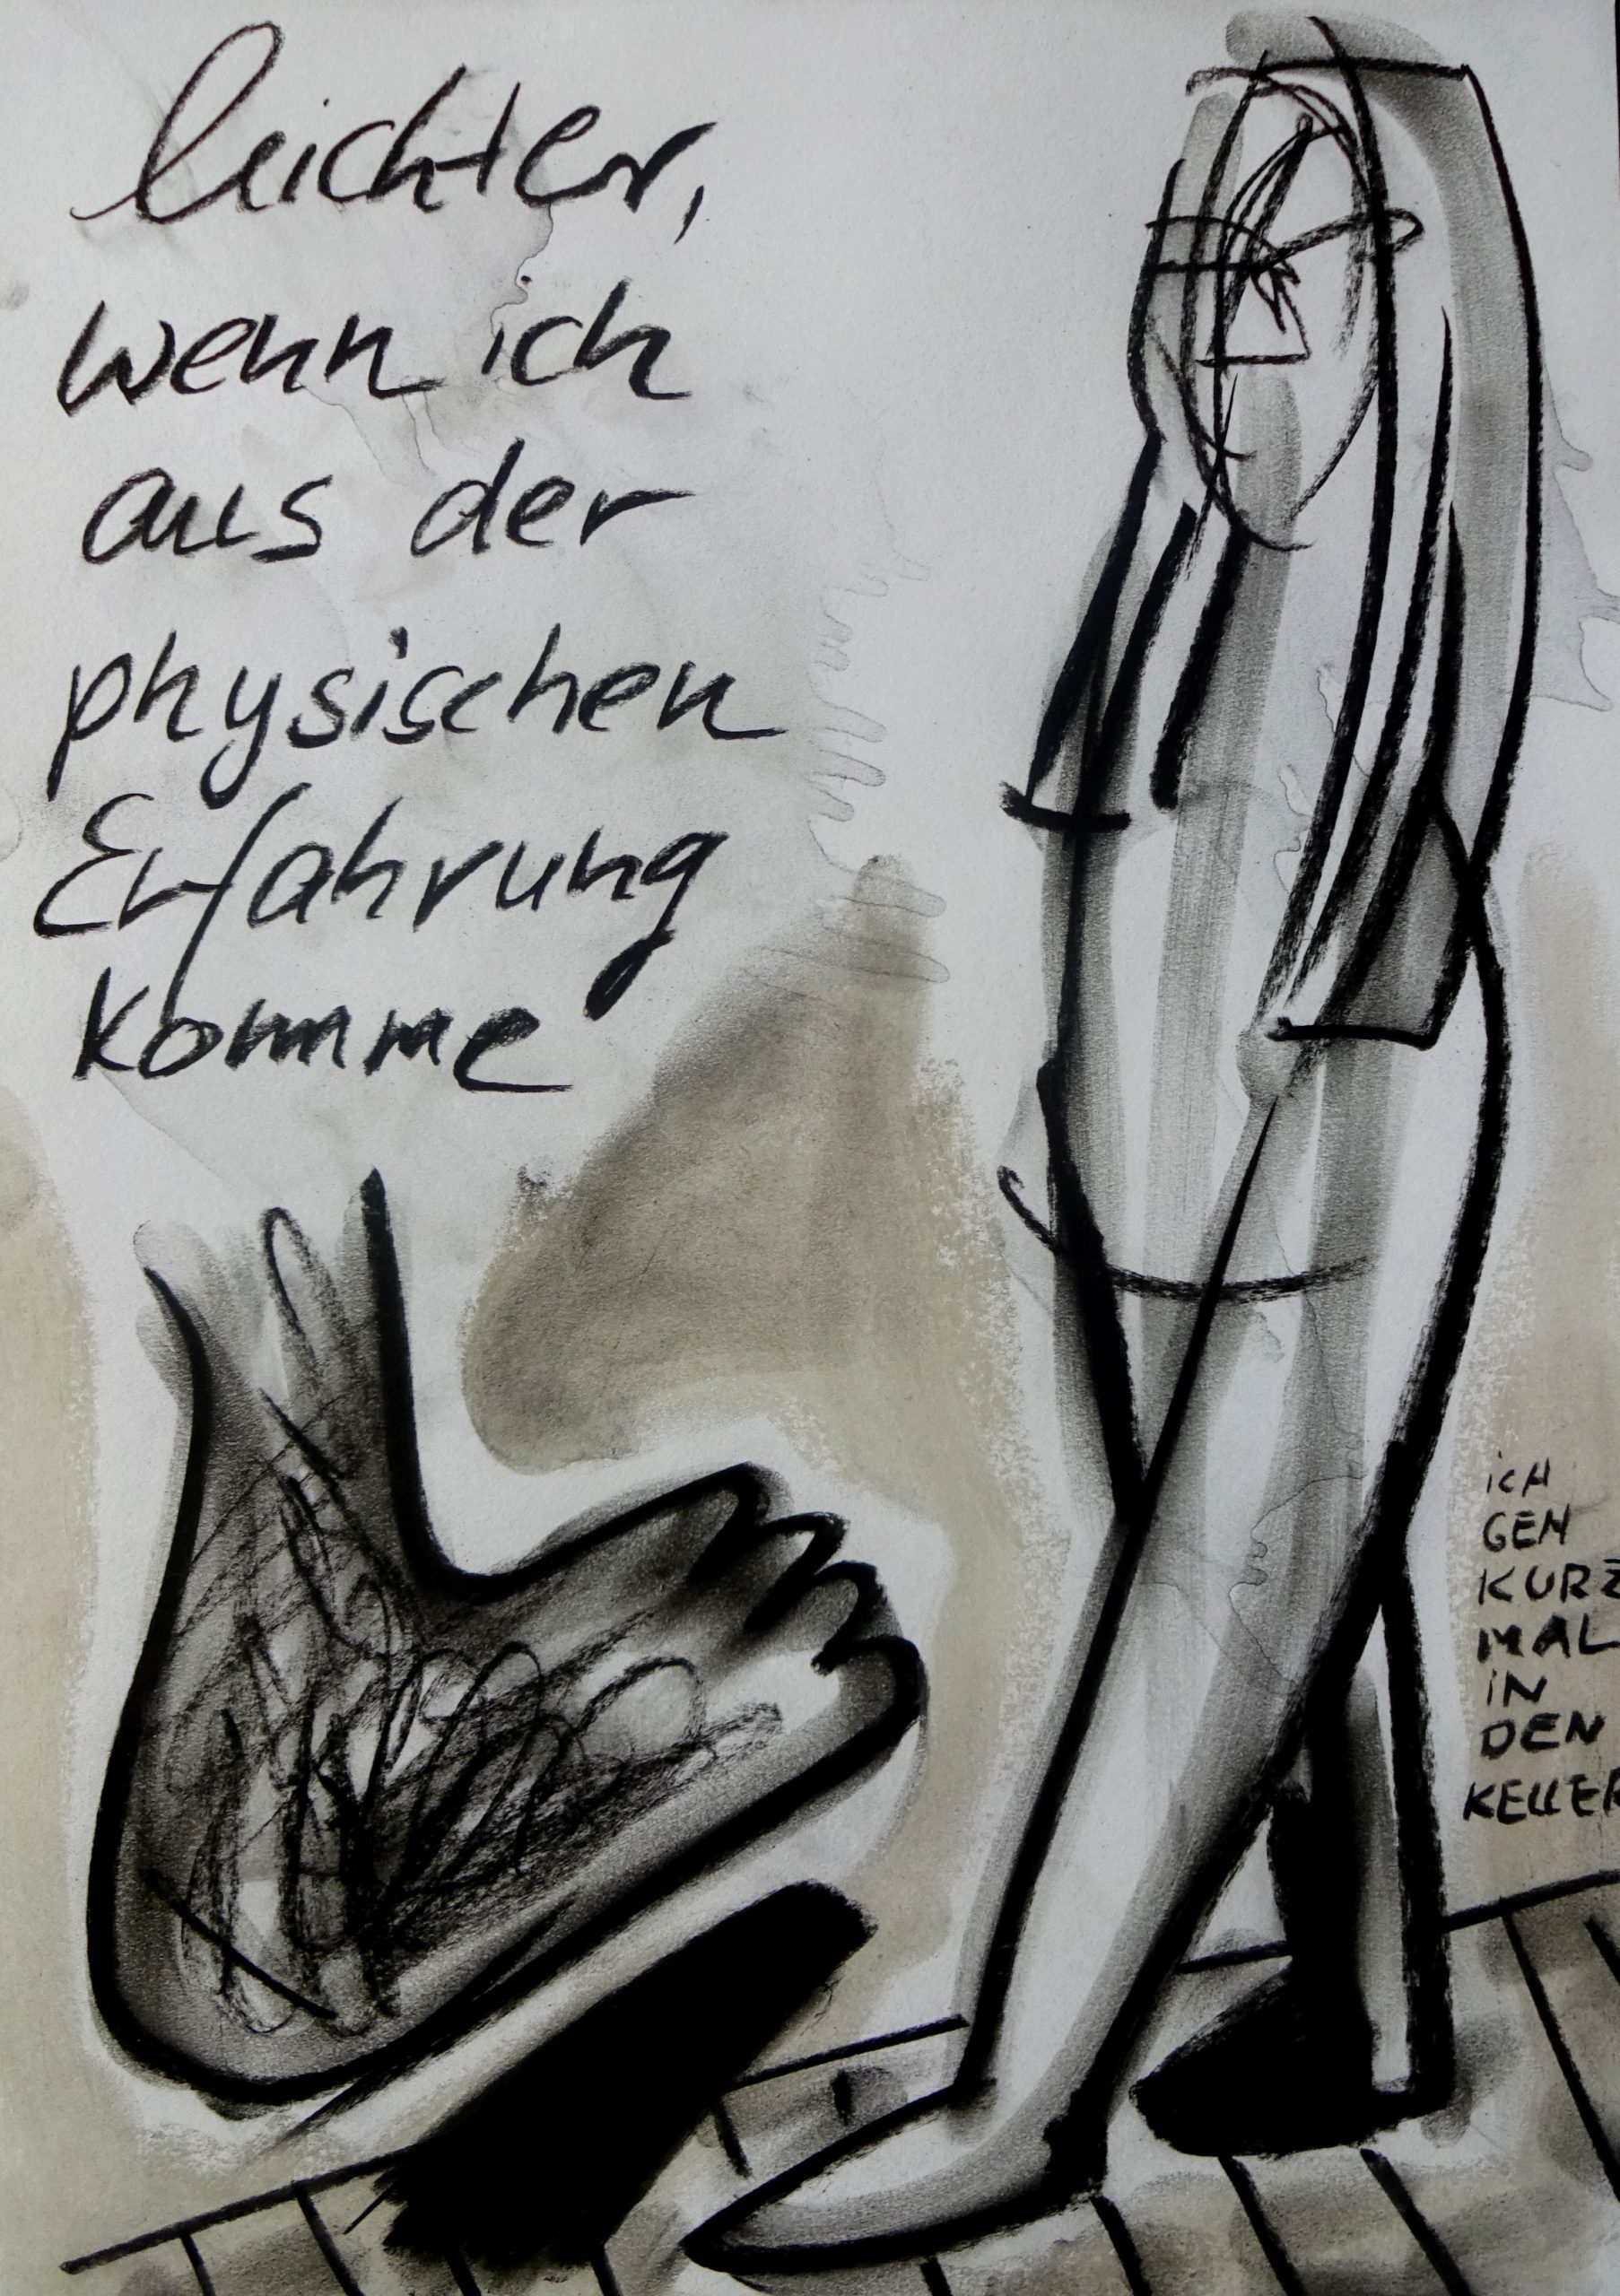 leichter,
wenn ich
aus der
physischen
Erfahrung
komme
iCH
GEH
KURZ
MAL
iN
DEN
KELLER